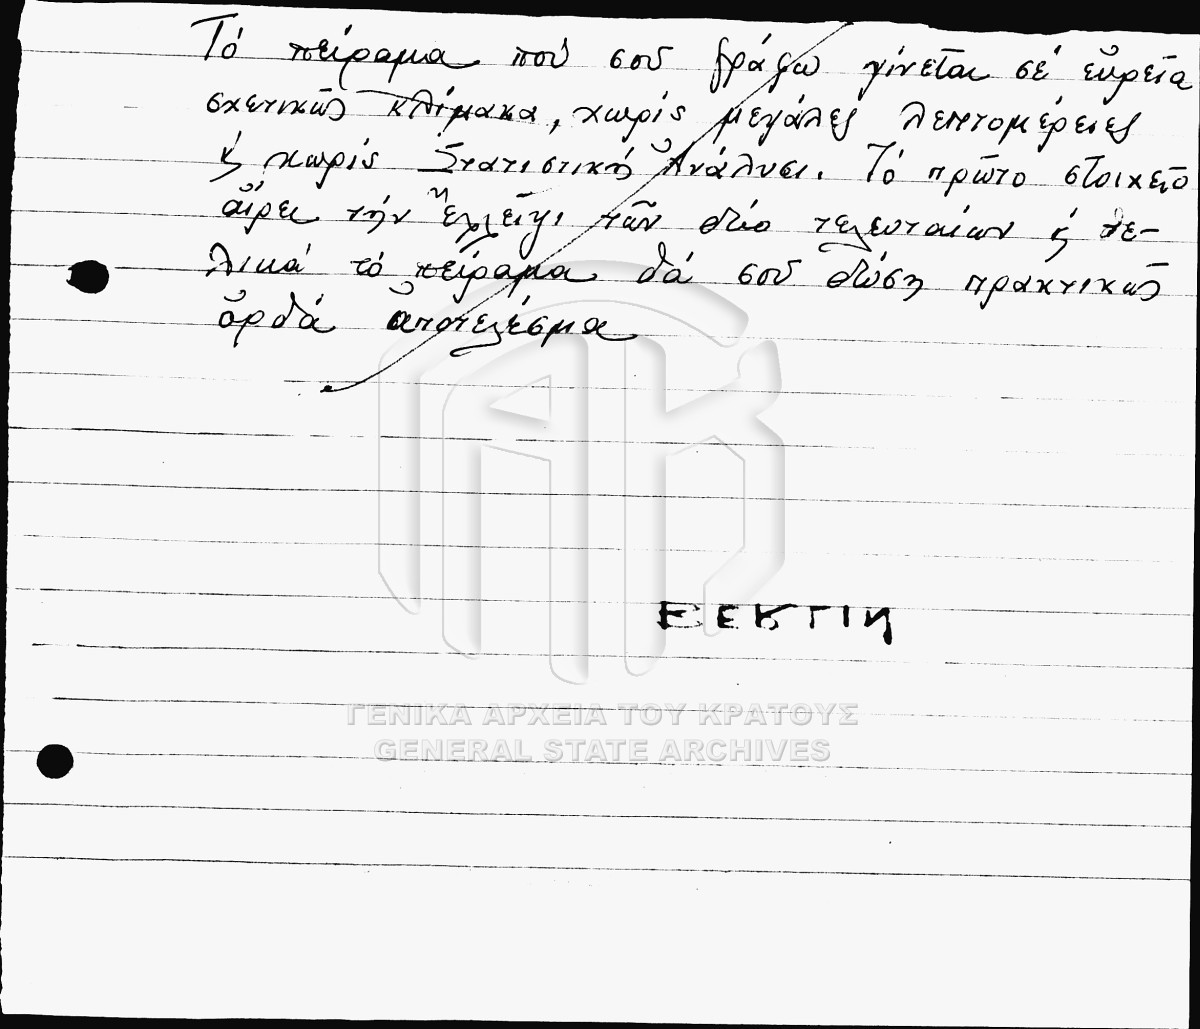 Τό πείραμα πού σου γράφω γίνεται σέ εὐρεῖα
σχετικῶς κλίμακα, χωρίς μεγάλες λεπτομέρειες
κ χωρίς Στατιστική Ἀνάλυσι. Τό πρῶτο στοιχεῖο
αἴρει τήν ἔλλειψι τῶν δύο τελευταίων κ τε-
λικά τό πείραμα θά σοῦ δώσῃ πρακτικῶς
ὀρθά ἀποτελέσμα
BERLIN
ΓΕΝΙΚΑ ΑΡΧΕΙΑ ΤΟΥ ΚΡΑΤΟΥΣ
GENERAL STATE ARCHIVES